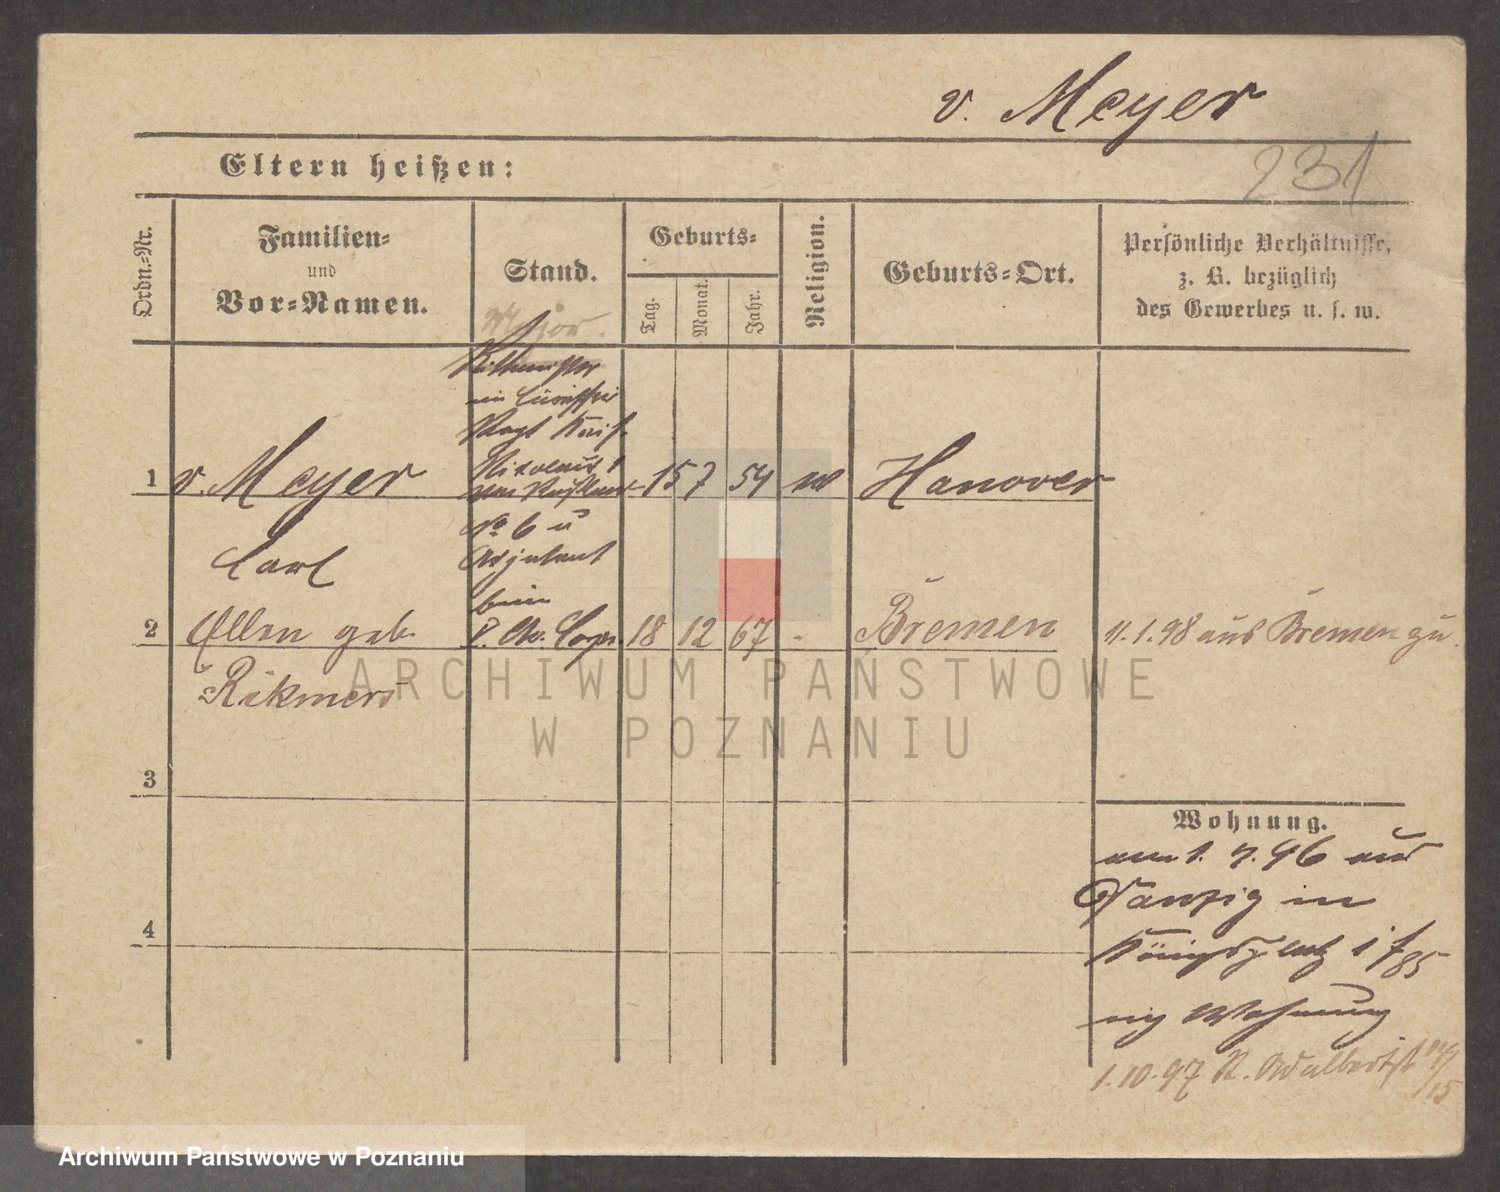 v. Meyer
231
Eltern heißen:
Ordn.-Nr.
Familien-
und
Vor-Namen.
Stand.
Geburts-
Tag.
Monat.
Jahr.
Religion.
Geburts-Ort.
Persönliche Verhältnisse,
z. B. bezüglich
des Gewerbes u. s. w.
Major.
Rittmeister
im Cürassier
Regt Kais.
Nikolaus I
von Rußland
No 6 u
Adjutant
beim
1 v. Meyer 15 7 54 Hanover
Carl
2 Ellen geb. 18 12 67 - Bremen 11.1.98 aus Bremen zu
Rikmers
3
4
Wohnung.
am 1. 7. 96 aus
Danzig in
Königsplatz
Wohnung
1.10.97 Adalbertst
ARCHIWUM PAŃSTWOWE
W POZNANIU
Archiwum Państwowe w Poznaniu